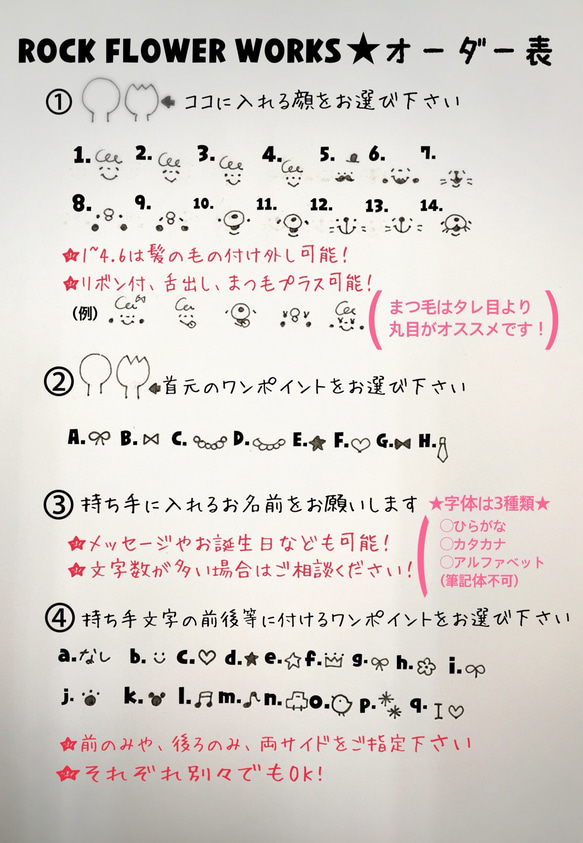 ROCK FLOWER WORKS★オーダー表
① ココに入れる顔をお選び下さい
1. 2. 3. 4. 5. 6. 7.
8. 9. 10. 11. 12. 13. 14.
★1~4.6は髪の毛の付け外し可能！
★リボン付、舌出し、まつ毛プラス可能！
(例)
まつ毛はタレ目より
丸目がオススメです！
② 首元のワンポイントをお選び下さい
A. B. C. D. E. F. G. H.
③ 持ち手に入れるお名前をお願いします
★メッセージやお誕生日なども可能！
★文字数が多い場合はご相談ください！
★字体は3種類★
○ひらがな
○カタカナ
○アルファベット
(筆記体不可)
④ 持ち手文字の前後等に付けるワンポイントをお選び下さい
a.なし b. c. d. e. f. g. h. i.
j. k. l. m. n. o. p. q. I♡
★前のみや、後ろのみ、両サイドをご指定下さい
★それぞれ別々でもOK！